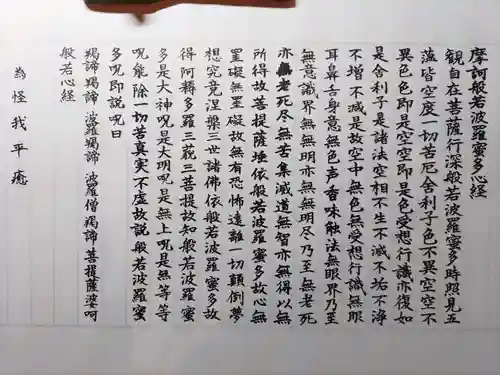 摩訶般若波羅蜜多心経
観自在菩薩行深般若波羅蜜多時照見五
蘊皆空度一切苦厄舎利子色不異空空不
異色色即是空空即是色受想行識亦復如
是舎利子是諸法空相不生不滅不垢不浄
不増不減是故空中無色無受想行識無眼
耳鼻舌身意無色声香味触法無眼界乃至
無意識界無無明亦無無明尽乃至無老死
亦無老死尽無苦集滅道無智亦無得以無
所得故菩提薩埵依般若波羅蜜多故心無
罣礙無罣礙故無有恐怖遠離一切顛倒夢
想究竟涅槃三世諸佛依般若波羅蜜多故
得阿耨多羅三藐三菩提故知般若波羅蜜
多是大神呪是大明呪是無上呪是無等等
呪能除一切苦真実不虚故説般若波羅蜜
多呪即説呪曰
羯諦羯諦 波羅羯諦 波羅僧羯諦 菩提薩婆呵
般若心経
為怪我平癒